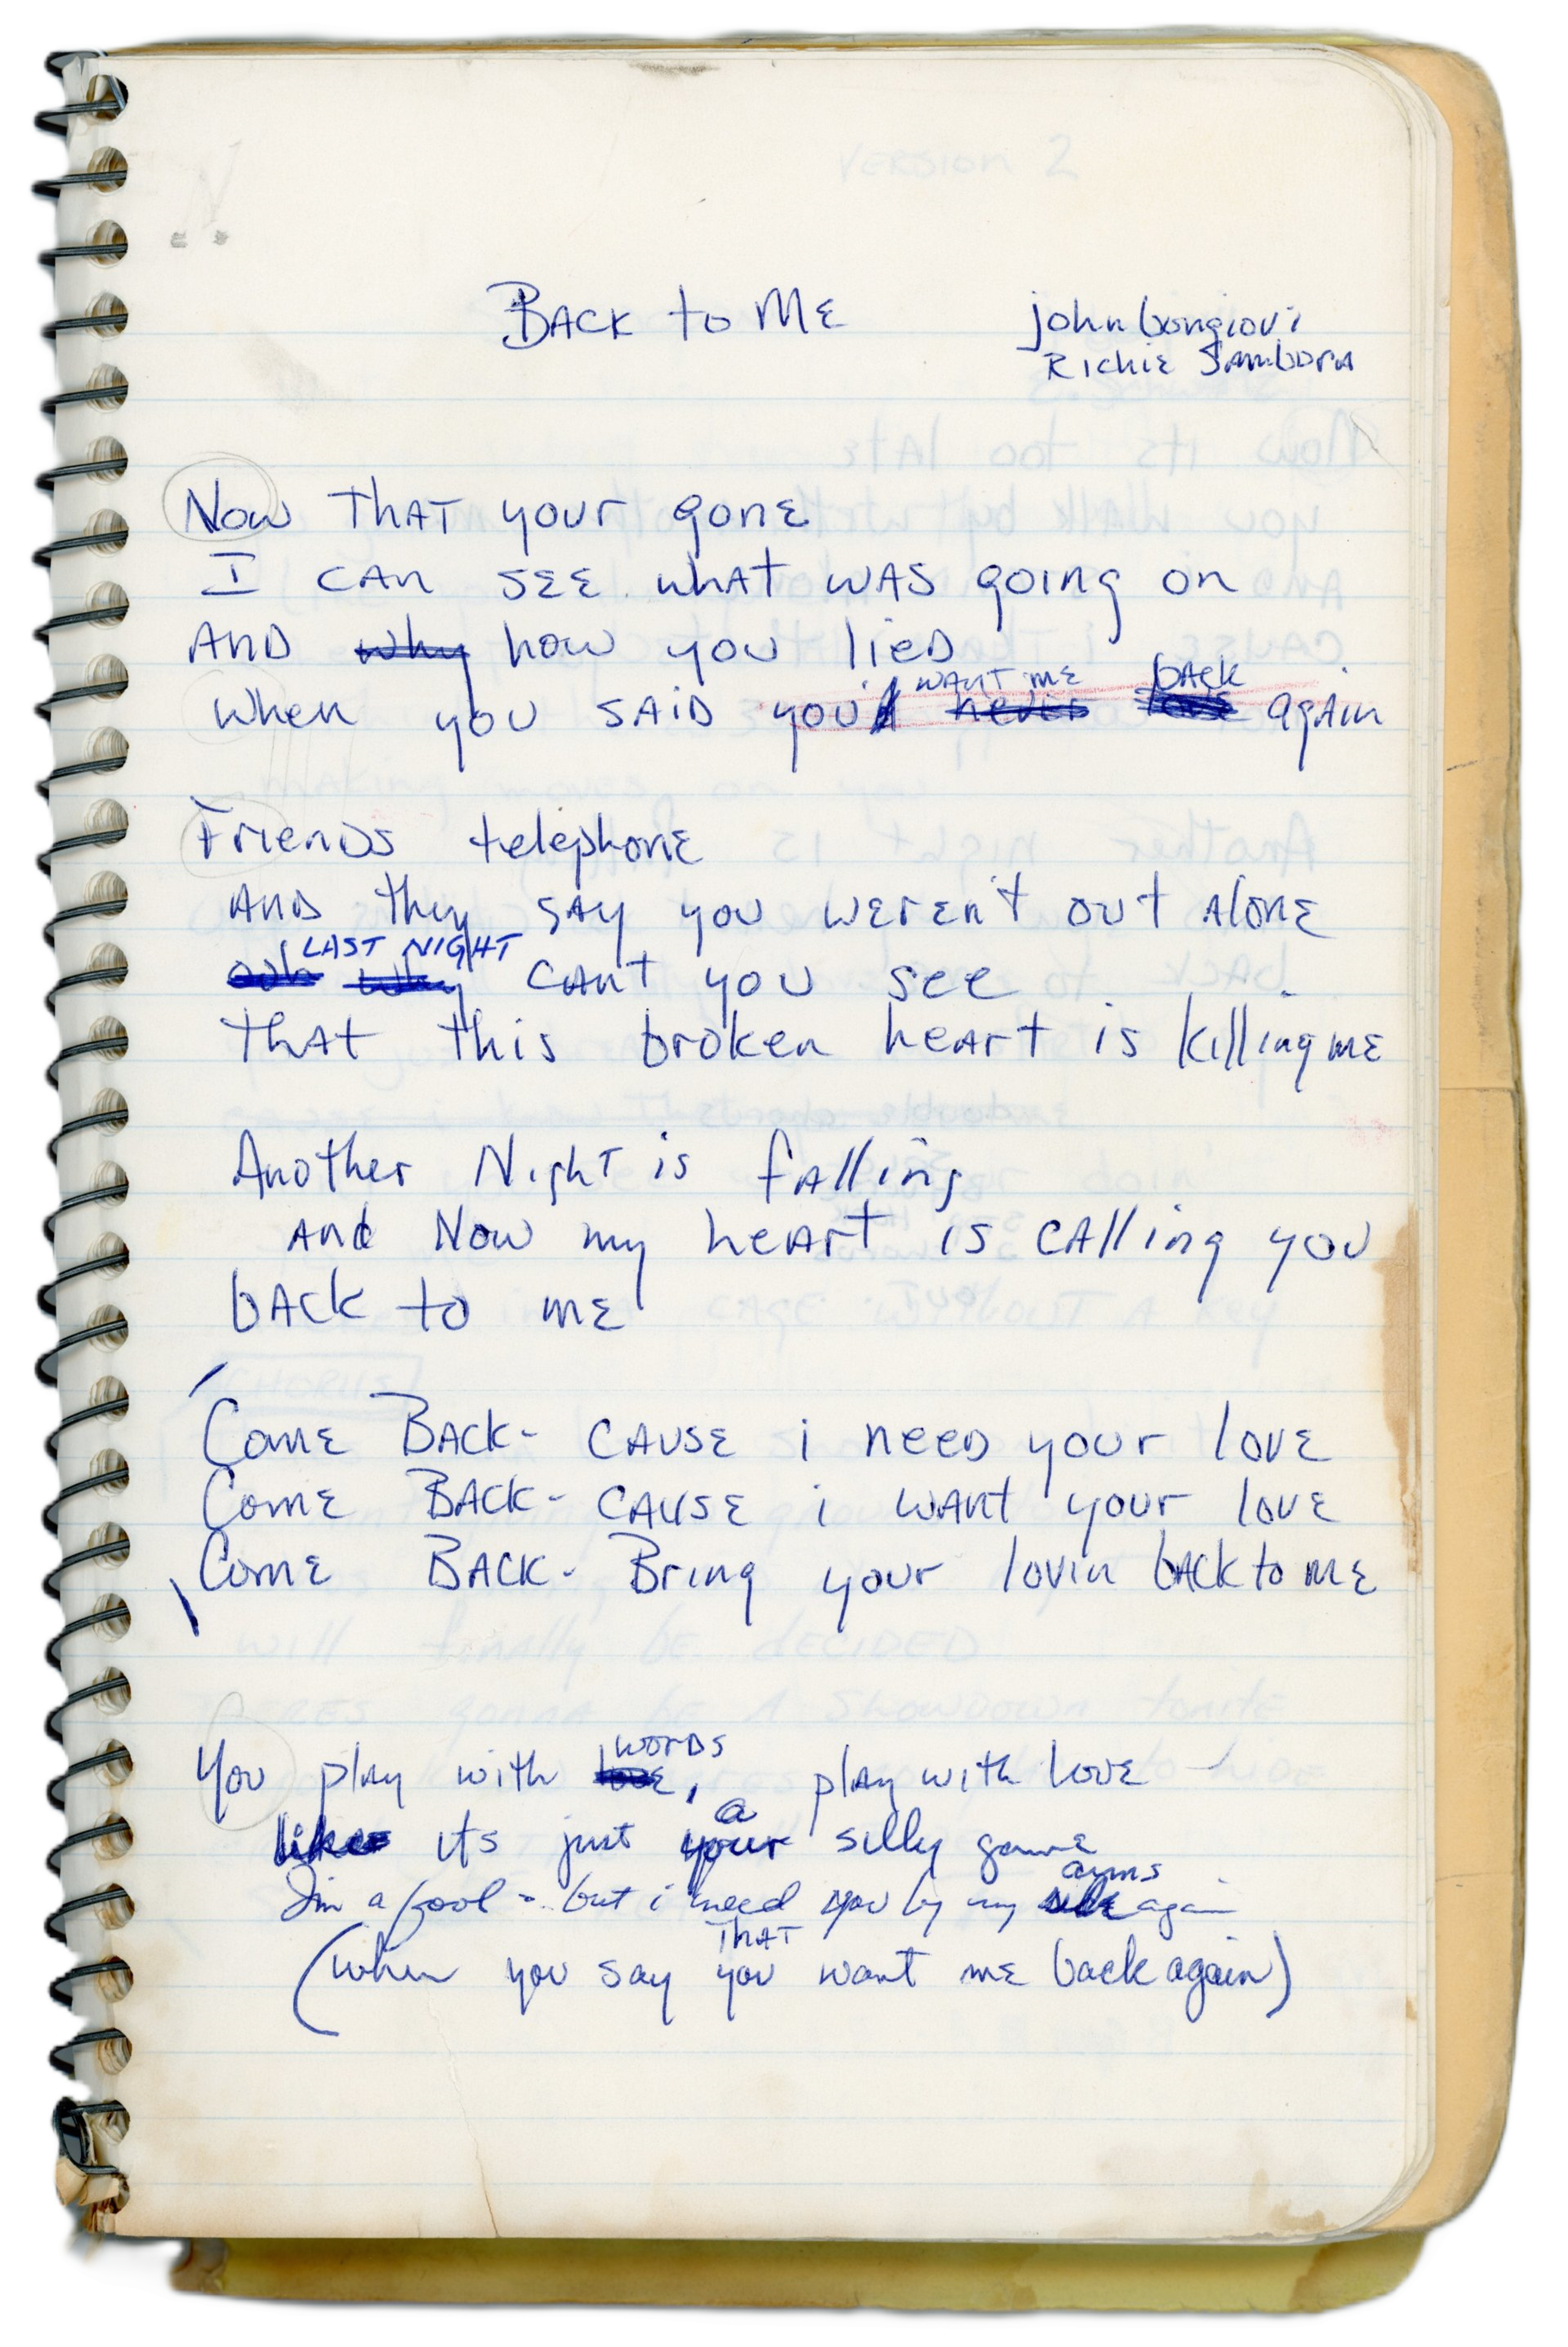 VERSION 2
BACK to ME
john bongiovi
Richie Sambora
Now THAT your gone
I CAN SEE what WAS going on
AND why how you lied
WANT ME back
When you SAID you'd never again
Friends telephone
AND they SAY you weren't out AlonE
LAST NIGHT
ooh why CAnt you see
THAT this broken heArt is killing mE
Another Night is fAlling
and Now my heArt is CAlling you
bAck to me
Come BACK - CAUSE i need your love
Come BACK - CAUSE i WANt your love
Come BACK - Bring your lovin bACk to ME
words
You play with love, play with love
a
like its just your silly game
arms
I'm a fool - but i need you by my side again
THAT
(when you say you want me back again)